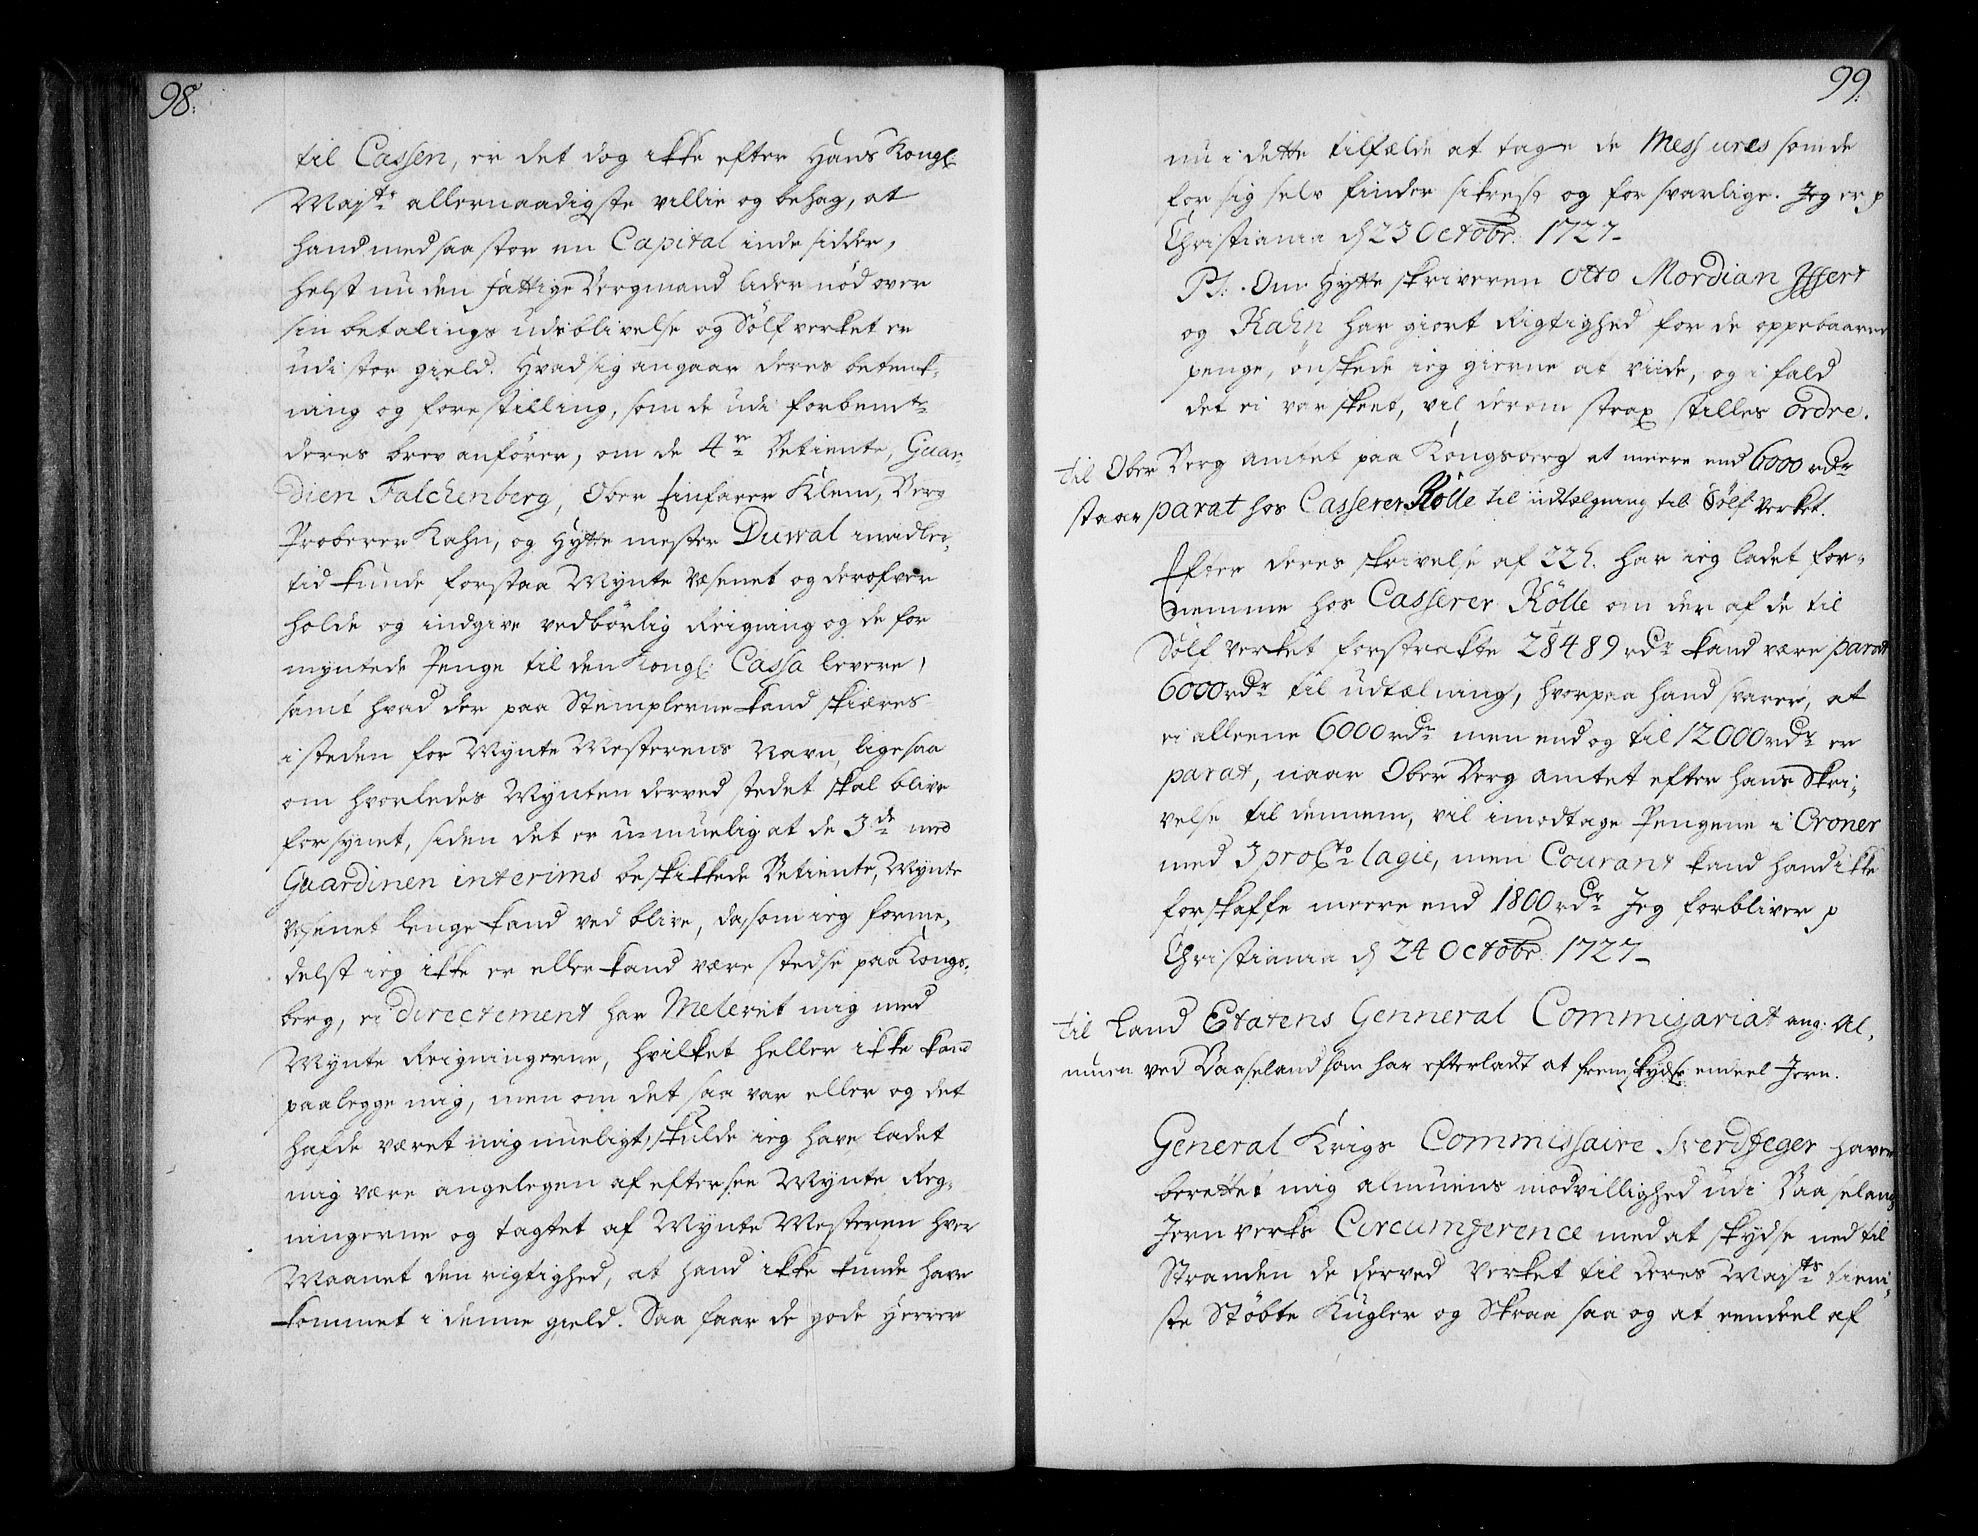 98.
til Cassen, er det dog ikke efter Hans Kongl:
Mayts allernaadigste villie og behag, at
hand med saa stor en Capital inde sidder,
helst nu den fattige Bergmand lider nød over
sin betalings udeblivelse og Sølfverket er
udi stor gield. Hvad sig angaar deres betenk-
ning og forestilling, som de udi forbemte
deres brev anfører, om de 4re Betiente, Guar-
dien Falchenberg, Ober Einfarer Klem, Berg
Proberer Kahn, og Hytte mester Duwal imidler-
tid kunde forstaa Mynte Væsenet og derofver
holde og indgive vedbørlig Reigning og de for
myntede Penge til den Kongl: Cassa levere,
samt hvad der paa Stemplerne kand skiæres
i steden for Mynte Mesterens Navn, ligesaa
om hvorledes Mynten derved stedet skal blive
forsynet, siden det er u-muelig at de 3de med
Guardinen interims beskikkede Betiente, Mynte
Væsenet lenge kand ved blive, da, som ieg forme,
delst ieg ikke er eller kand være stedse paa Kongs-
berg, ei directement har Meleret mig med
Mynte Reigningerne, hvilket heller ikke kand
paalegge mig, men om det saa var eller og det
hafde været mig mueligt, skulde ieg have ladet
mig være angelegen af eftersee Mynte Reg-
ningerne og tagtet af Mynte Mesteren hver
Maanet den rigtighed, at hand ikke kunde have
kommet i denne gield. Saa faar de gode Herrer
99.
nu i dette tilfælde at tage de Messures som de
for sig selv finder sikrest og forsvarlige. Jeg er p
Christiania d 23 Octobr: 1727-
PS:. Om Hytte skriveren Otto Mordian Iffert
og Kahn har giort Rigtighed for de oppebaarne
penge, ønskede ieg gierne at viide, og i fald
det ei var skeet, vil derom strax stilles Ordre.
til Ober Berg Amtet paa Kongsberg at meere end 6000 rdr
staar parat hos Casserer Rölle til udtælgning til Sølf Verket.
Efter deres skrivelse af 22h. har ieg ladet for-
nemme hos Casserer Rölle om der af de til
Sølf Verket forstrakte 28489 rdr kand være parat
6000 rdr til udtælning, hvorpaa hand svarer, at
ei alleene 6000 rdr men end og til 12000 rdr er
parat, naar Ober Berg Amtet efter hans Skri-
velse til dennem, vil imodtage Pengene i Croner
med 3 pro Cto lagie, men Courant kand hand ikke
forskaffe meere end 1800 rdr Jeg forbliver p
Christiania d 24 Octobr: 1727-
til Land Etatens Genneral Commisariat ang: Al,
muen ved Baaseland som har efterladt at fremskydse endeel Jern.
General Krigs Commissaire Sverdfeger haver
berettet mig almuens modvillighed udi Baaselands
Jern verks Circumference med at skydse ned til
Stranden de derved Verket til deres Mayts tieni-
ste Støbte Kugler og Skraa saa og at eendeel af